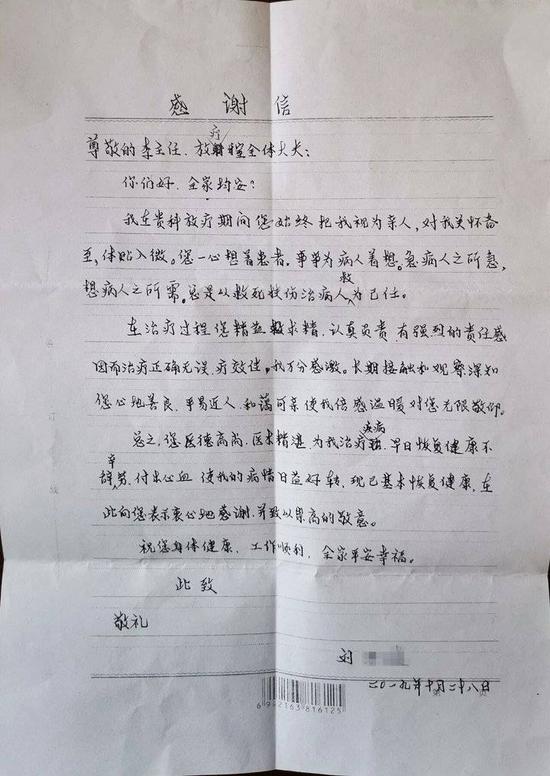 感谢信
尊敬的李主任、放疗室全体大夫:
你们好、全家均安?
我在贵科放疗期间您始终把我视为亲人,对我关怀备
至,体贴入微。您一心想着患者,事事为病人着想。急病人之所急,
想病人之所需。总是以救死扶伤治病救人为己任。
在治疗过程您精益求精,认真负责 有强烈的责任感
因而治疗正确无误,疗效佳,我万分感激。长期接触和观察深知
您心地善良、平易近人、和蔼可亲使我倍感温暖对您无限敬仰。
总之,您医德高尚、医术精湛,为我治疗疾病,早日恢复健康不
辞辛劳、付出心血 使我的病情日益好转,现已基本恢复健康,在
此向您表示衷心地感谢,并致以崇高的敬意。
祝您身体健康、工作顺利,全家平安幸福。
此致
敬礼
刘
二〇一九年十月二十八日
6 992163 816125